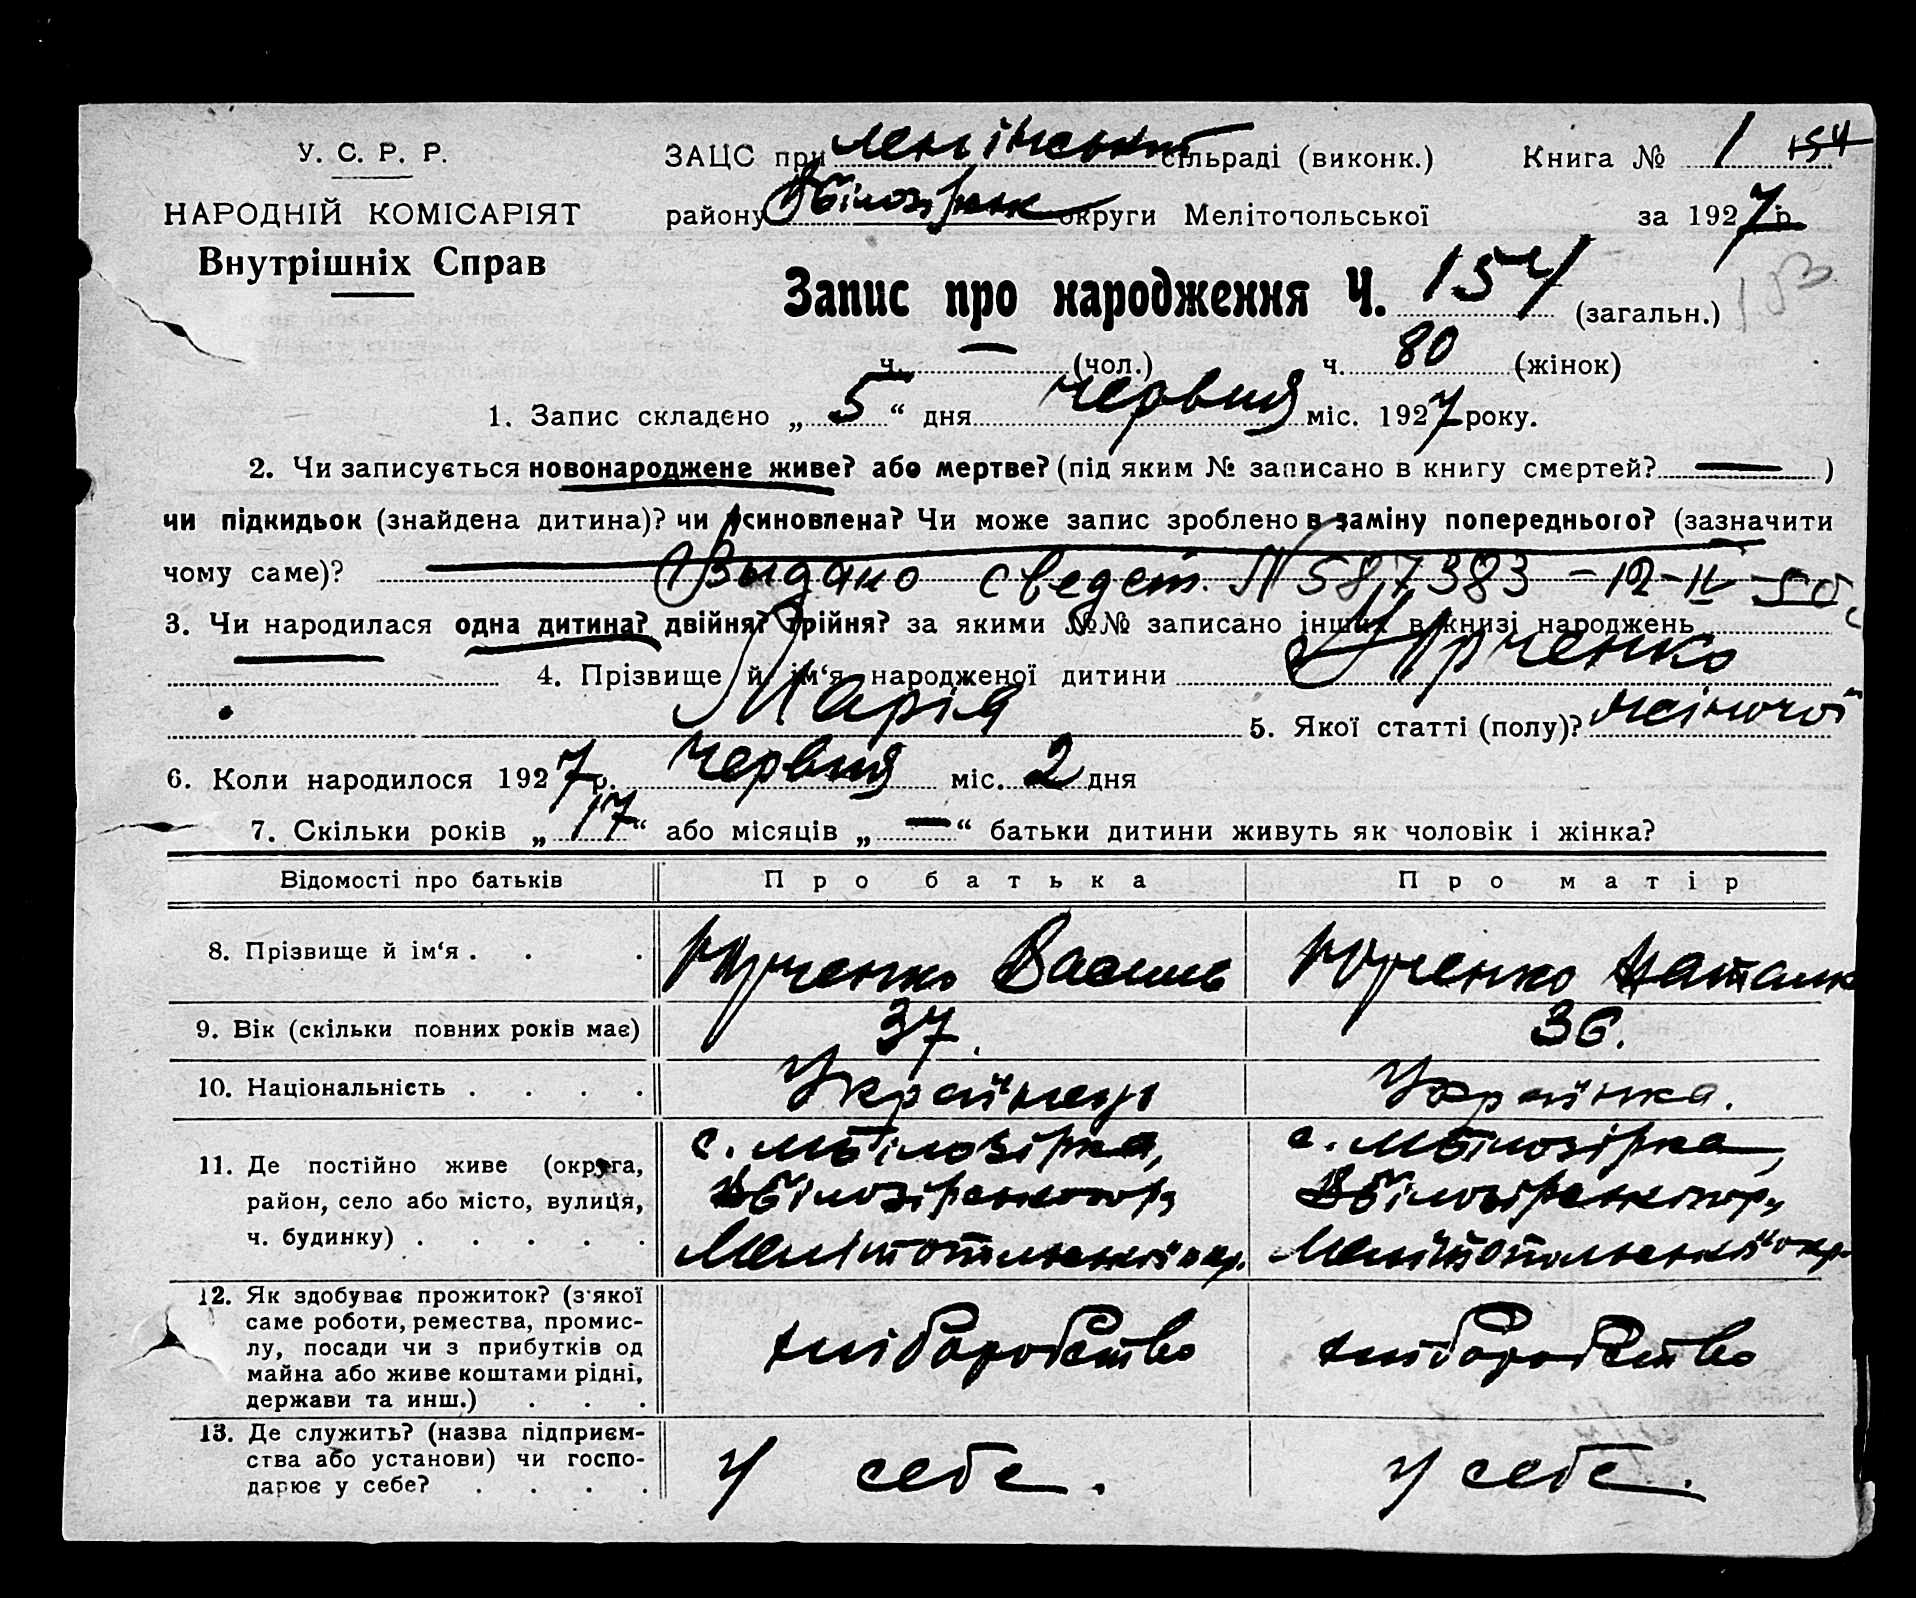 У. С. Р. Р.
НАРОДНІЙ КОМІСАРІЯТ
Внутрішніх Справ
ЗАЦС при Ленінській сільраді (виконк.) Книга № 1 154
району Вбілозірськ округи Мелітопольської за 1927 р.
Запис про народження Ч. 154 (загальн.) 153
ч. — (чол.) ч. 80 (жінок)
1. Запис складено „5“ дня червня міс. 1927 року.
2. Чи записується новонароджене живе? або мертве? (під яким № записано в книгу смертей? — )
чи підкидьок (знайдена дитина)? чи усиновлена? Чи може запис зроблено в заміну попереднього? (зазначити
чому саме)? Выдано свидет. N 587383 – 12–II–50
3. Чи народилася одна дитина? двійня? трійня? за якими №№ записано інших в книзі народжень
4. Прізвище й ім‘я народженої дитини Юрченко
Марія 5. Якої статті (полу)? жіночої
6. Коли народилося 1927 р. червня міс. 2 дня
7. Скільки років „17“ або місяців „—“ батьки дитини живуть як чоловік і жінка?
Відомості про батьків Про батька Про матір
8. Прізвище й ім‘я . . . Юрченко Василь Юрченко Наталя
9. Вік (скільки повних років має) 37. 36.
10. Національність . . . . Українець Українка.
11. Де постійно живе (округа, с. МБілозірка, с. МБілозірка,
район, село або місто, вулиця,
ч. будинку) . . . . . Мелітопільської окр. Мелітопільської окр.
12. Як здобуває прожиток? (з'якої
саме роботи, ремества, промис-
лу, посади чи з прибутків од хліборобство хліборобство
майна або живе коштами рідні,
держави та инш.) . . .
13. Де служить? (назва підприєм-
ства або установи) чи госпо- у себе. у себе.
дарює у себе? . . . .